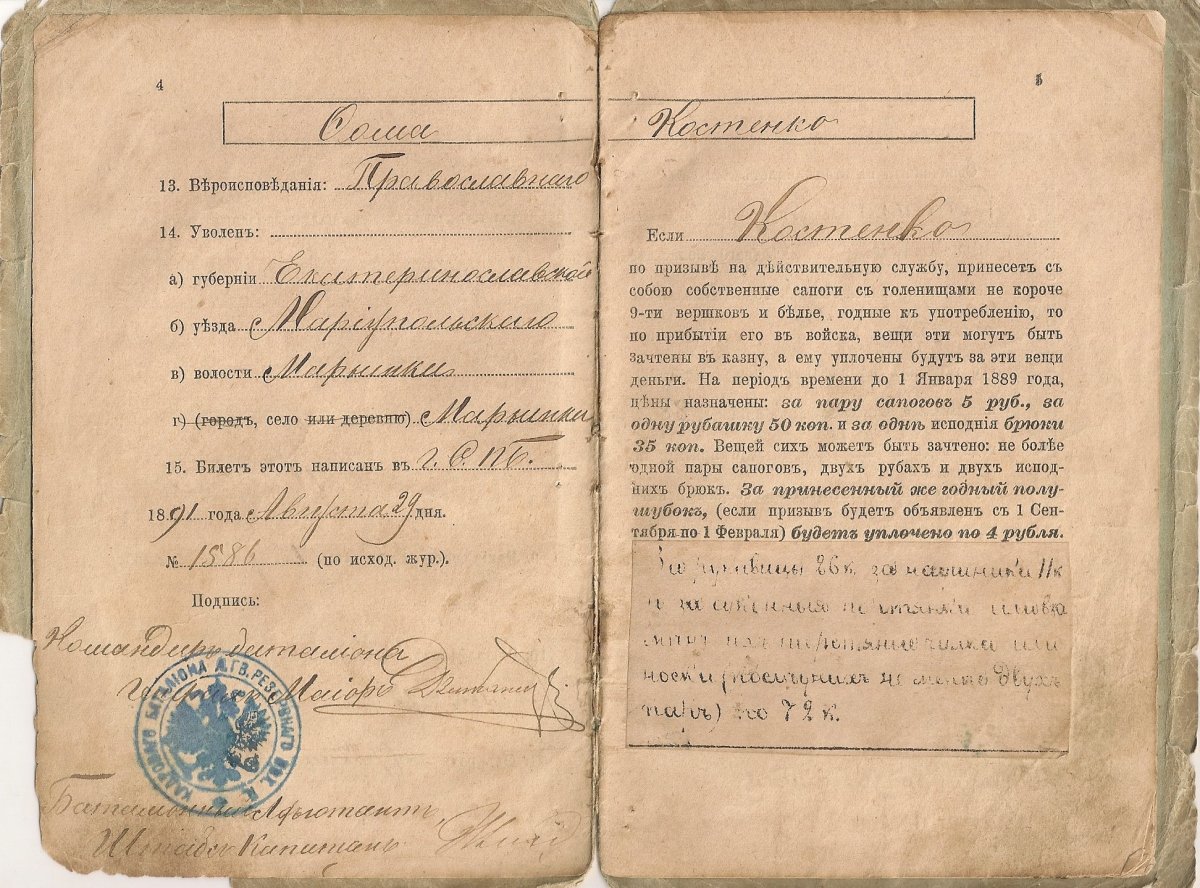 4
Ѳома
13. Вѣроисповѣданія: Православнаго
14. Уволенъ:
а) губерніи Екатеринославской
б) уѣзда Маріупольскаго
в) волости Марьинки
г) (городъ, село или деревню) Марьинки
15. Билетъ этотъ написанъ въ г. С. П. Б.
1891 года Августа 29 дня.
№ 1586 (по исход. жур.).
Подпись:
Командиръ баталіона
Маіоръ
КАДРОВАГО БАТАЛІОНА Л.ГВ. РЕЗЕРВНАГО ПѢХ. П.
Баталіонный Адъютантъ,
Штабсъ Капитанъ
5
Костенко
Если Костенко
по призывѣ на дѣйствительную службу, принесетъ съ
собою собственные сапоги съ голенищами не короче
9-ти вершковъ и бѣлье, годные къ употребленію, то
по прибытіи его въ войска, вещи эти могутъ быть
зачтены въ казну, а ему уплочены будутъ за эти вещи
деньги. На періодъ времени до 1 Января 1889 года,
цѣны назначены: за пару сапоговъ 5 руб., за
одну рубашку 50 коп. и за однѣ исподнія брюки
35 коп. Вещей сихъ можетъ быть зачтено: не болѣе
одной пары сапоговъ, двухъ рубахъ и двухъ испод-
нихъ брюкъ. За принесенный же годный полу-
шубокъ, (если призывъ будетъ объявленъ съ 1 Сен-
тября по 1 Февраля) будетъ уплочено по 4 рубля.
За рукавицы 26 к. за 11 к
и
или
носки не менѣе двухъ
паръ) по 72 к.